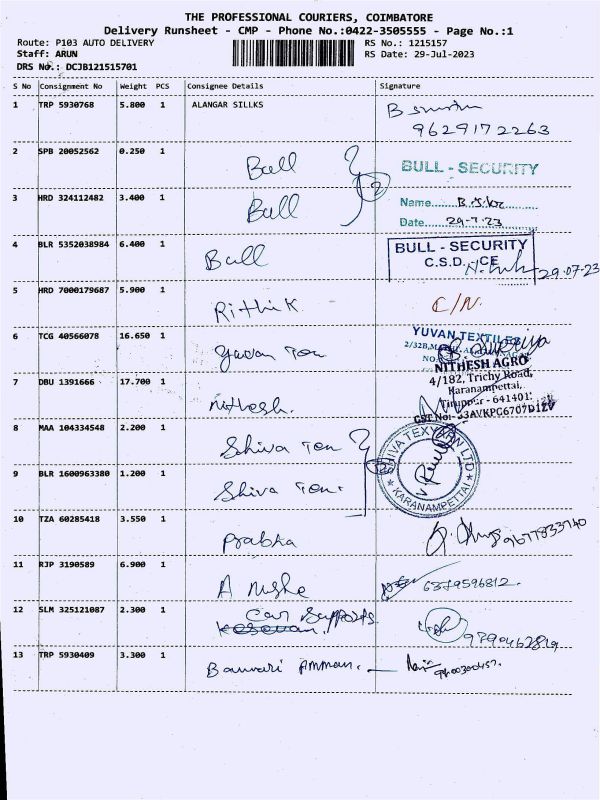 THE PROFESSIONAL COURIERS, COIMBATORE
Delivery Runsheet - CMP - Phone No.:0422-3505555 - Page No.:1
Route: P103 AUTO DELIVERY
RS No.: 1215157
Staff: ARUN
RS Date: 29-Jul-2023
DRS No.: DCJB121515701
S No Consignment No Weight PCS Consignee Details Signature
1 TRP 5930768 5.800 1 ALANGAR SILLKS
9629172263
2 SPB 20052562 0.250 1 Bull BULL - SECURITY
3 HRD 324112482 3.400 1 Bull 2 Name
Date 29-7-23
4 BLR 5352038984 6.400 1 Bull BULL - SECURITY
C.S.D. - CE
29.07.23
5 HRD 7000179687 5.900 1 Rithik C/N.
6 TCG 40566078 16.650 1 Yuvan Tex YUVAN TEXTILES
2/32B,
NO:
NITHESH AGRO
7 DBU 1391666 17.700 1 Nithesh. 4/182, Trichy Road,
Karanampettai,
Tiruppur - 641401
GST No:- 33AVKPC6707D1ZV
8 MAA 104334548 2.200 1 Shiva Tex
9 BLR 1600963380 1.200 1 Shiva Tex. 2 SHIVA TEXYARN LTD
KARANAMPETTAI
10 TZA 60285418 3.550 1 Prabha 9677833740
11 RJP 3190589 6.900 1 A Nishe 6379596812.
12 SLM 325121087 2.300 1 Car Supports
13 TRP 5930409 3.300 1 Bannari Amman.